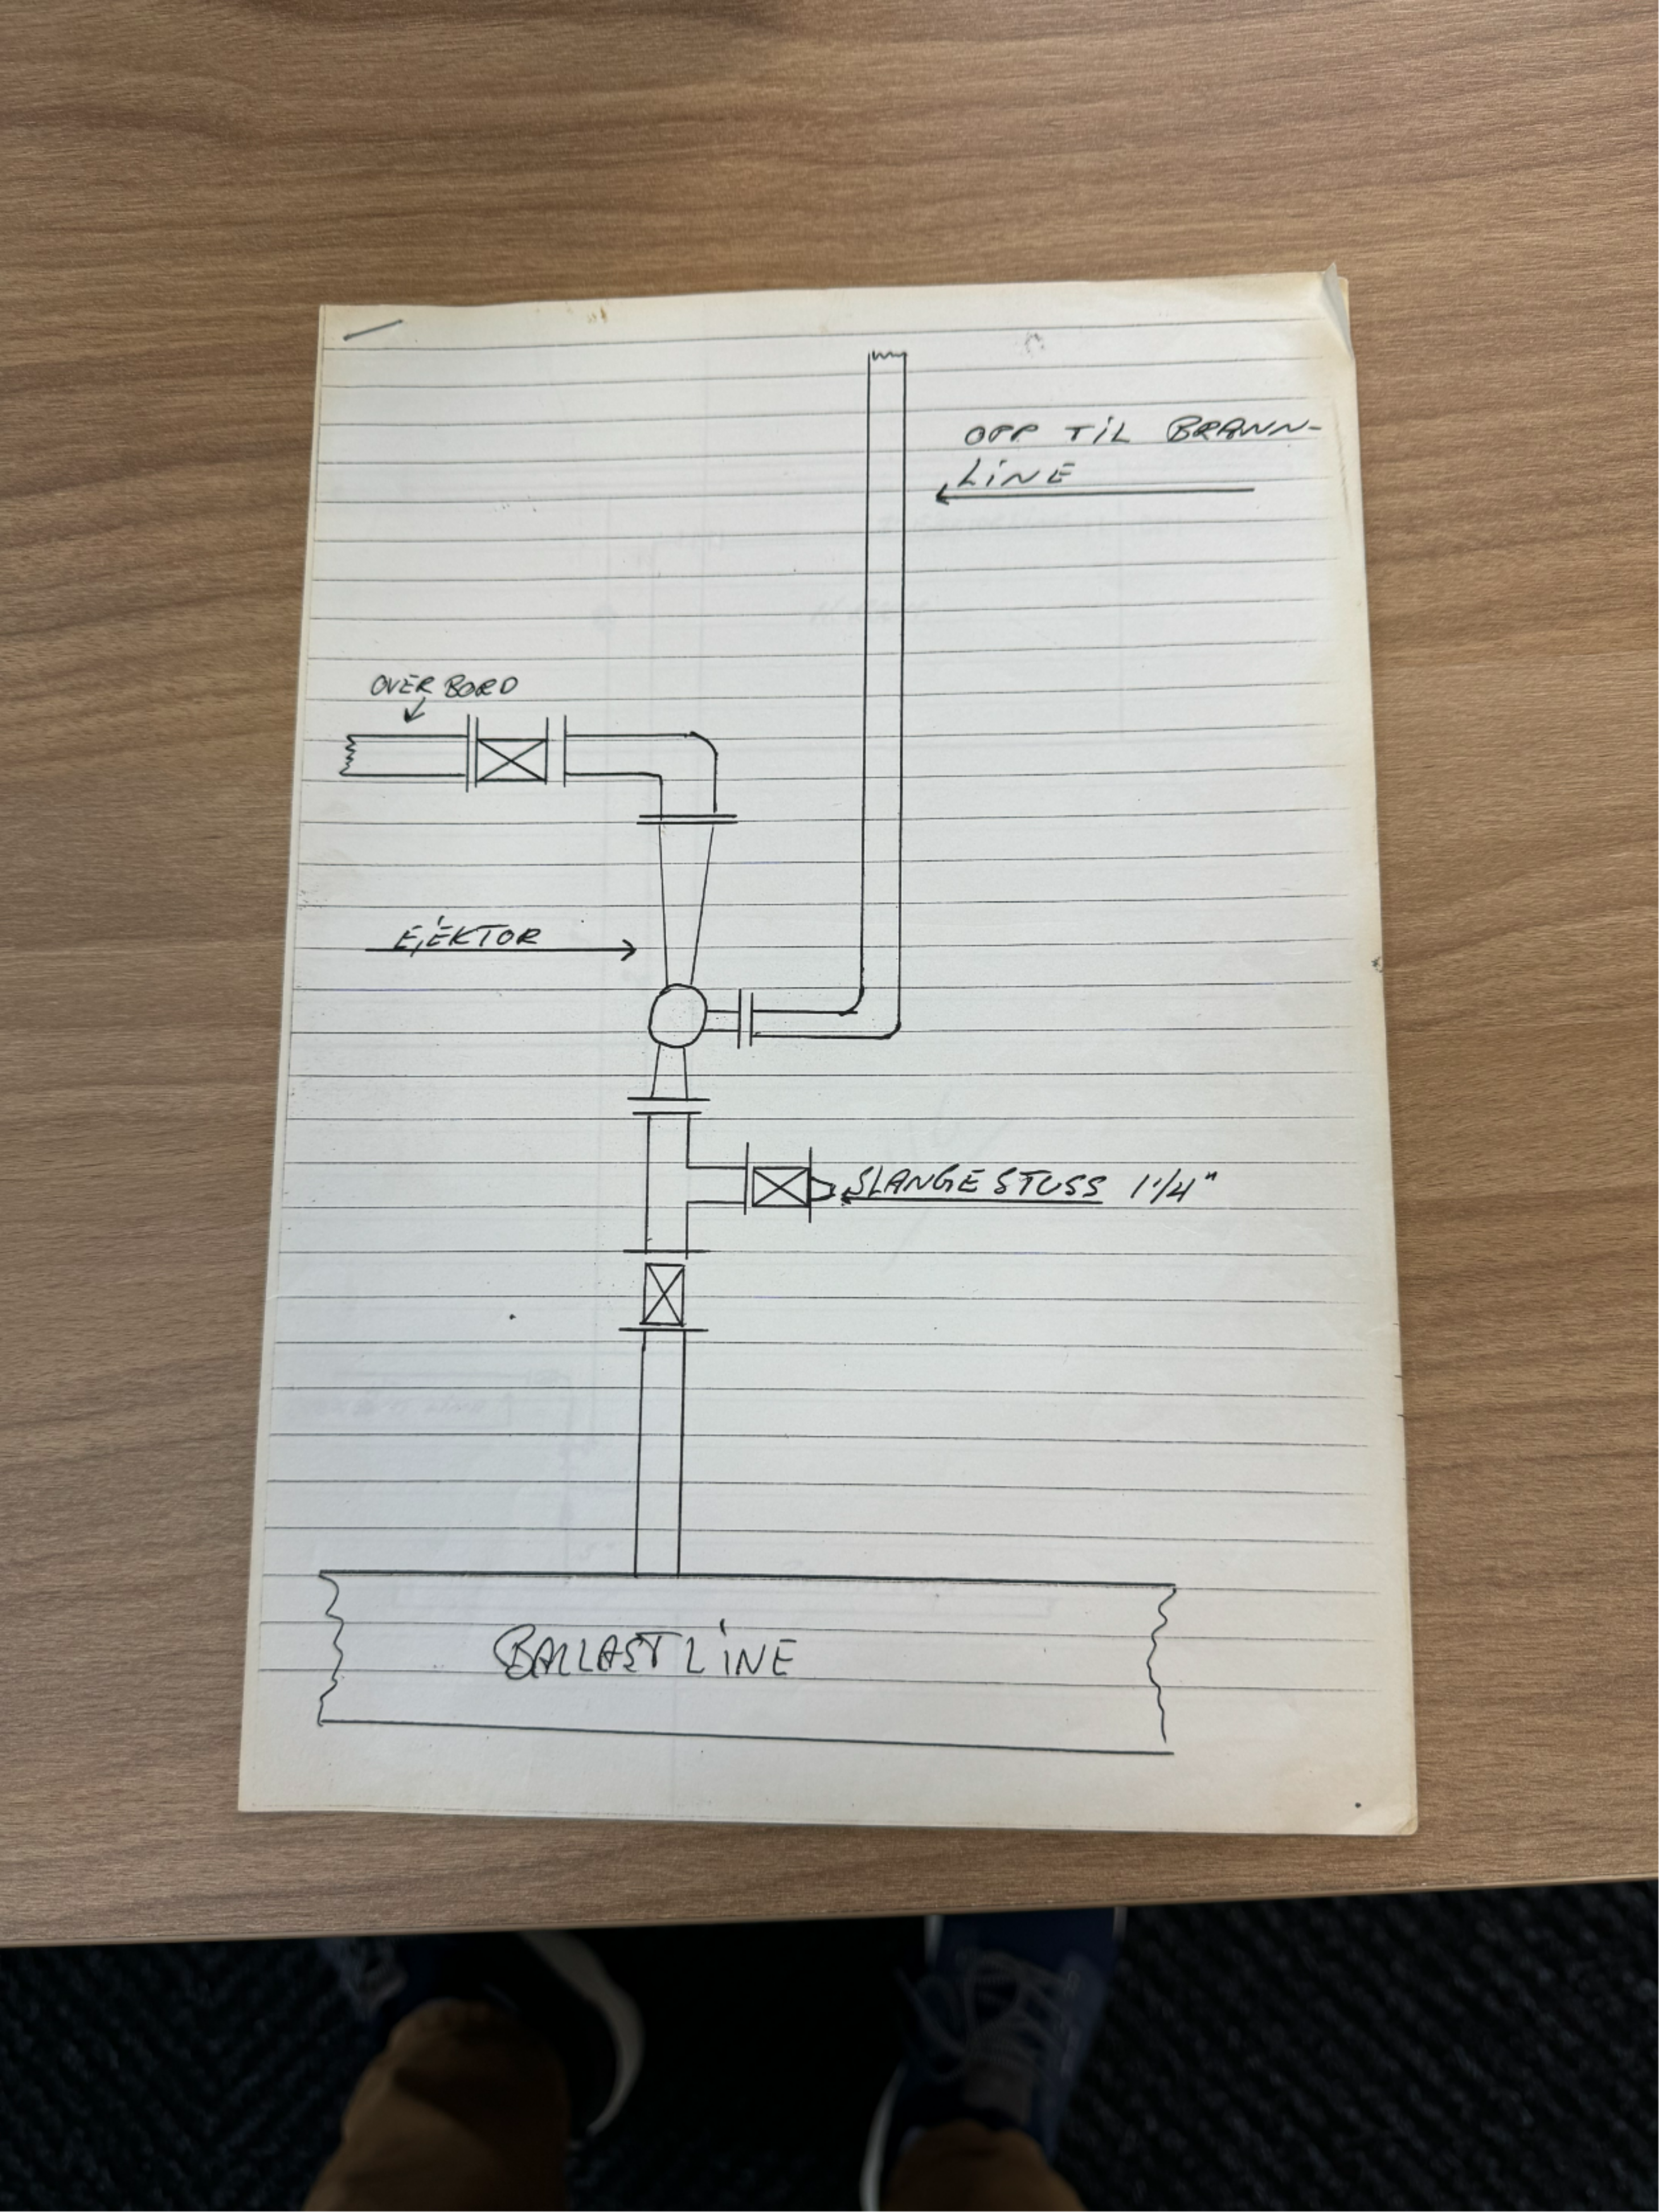 OPP TIL BRANN-
LINE
OVER BORD
EJEKTOR
SLANGE STUSS 1 1/4"
BALLAST LINE